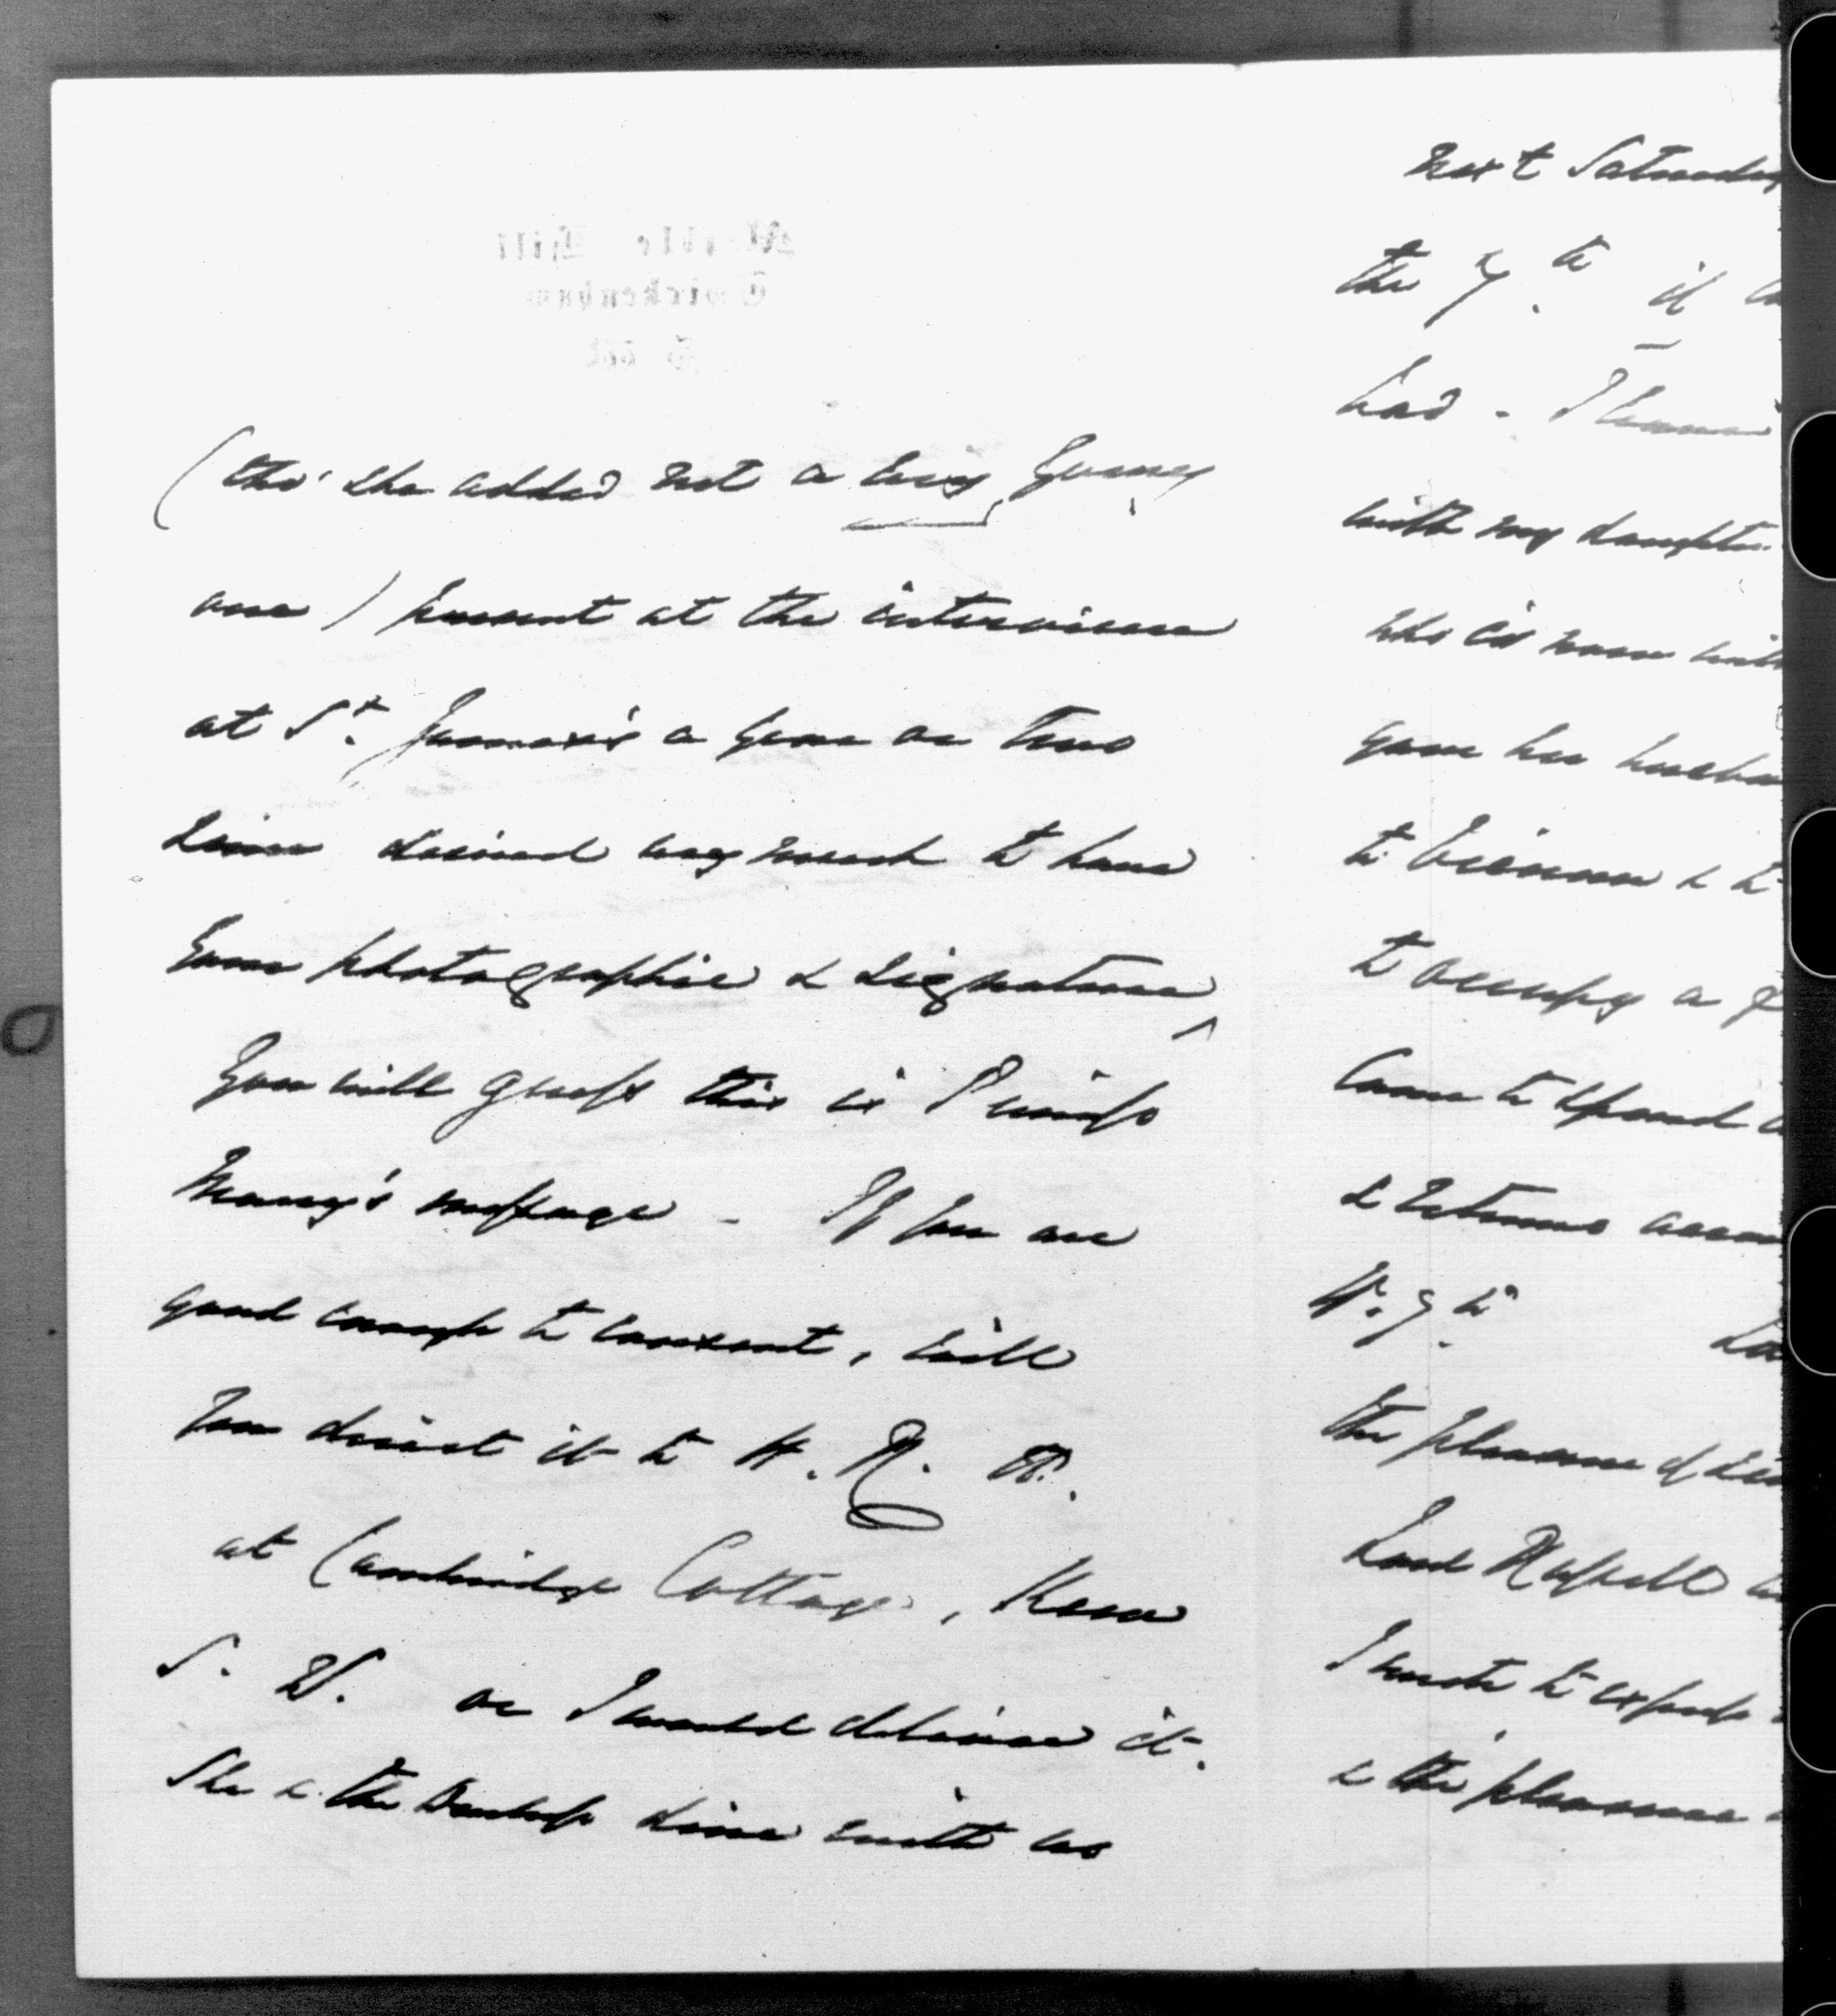 (tho' she added not a very young
one) present at the interview
at St. James's a year or two
since desired very much to have
your photographic & signature
You will guess this is Princess
Mary's message - If you are
good enough to consent, will
you direct it to H. R. H.
at Cambridge Cottage, Kew
S. W. or I would deliver it.
She & the Duchess dine with us
next Saturday
the 7th if
had -
with my daughter
who is now with
gone her husba
to Vienna & to
to occupy a
Came to spend
& returns
W. 7th
the pleasure of
Lord Russell
I wrote to express
& the pleasure